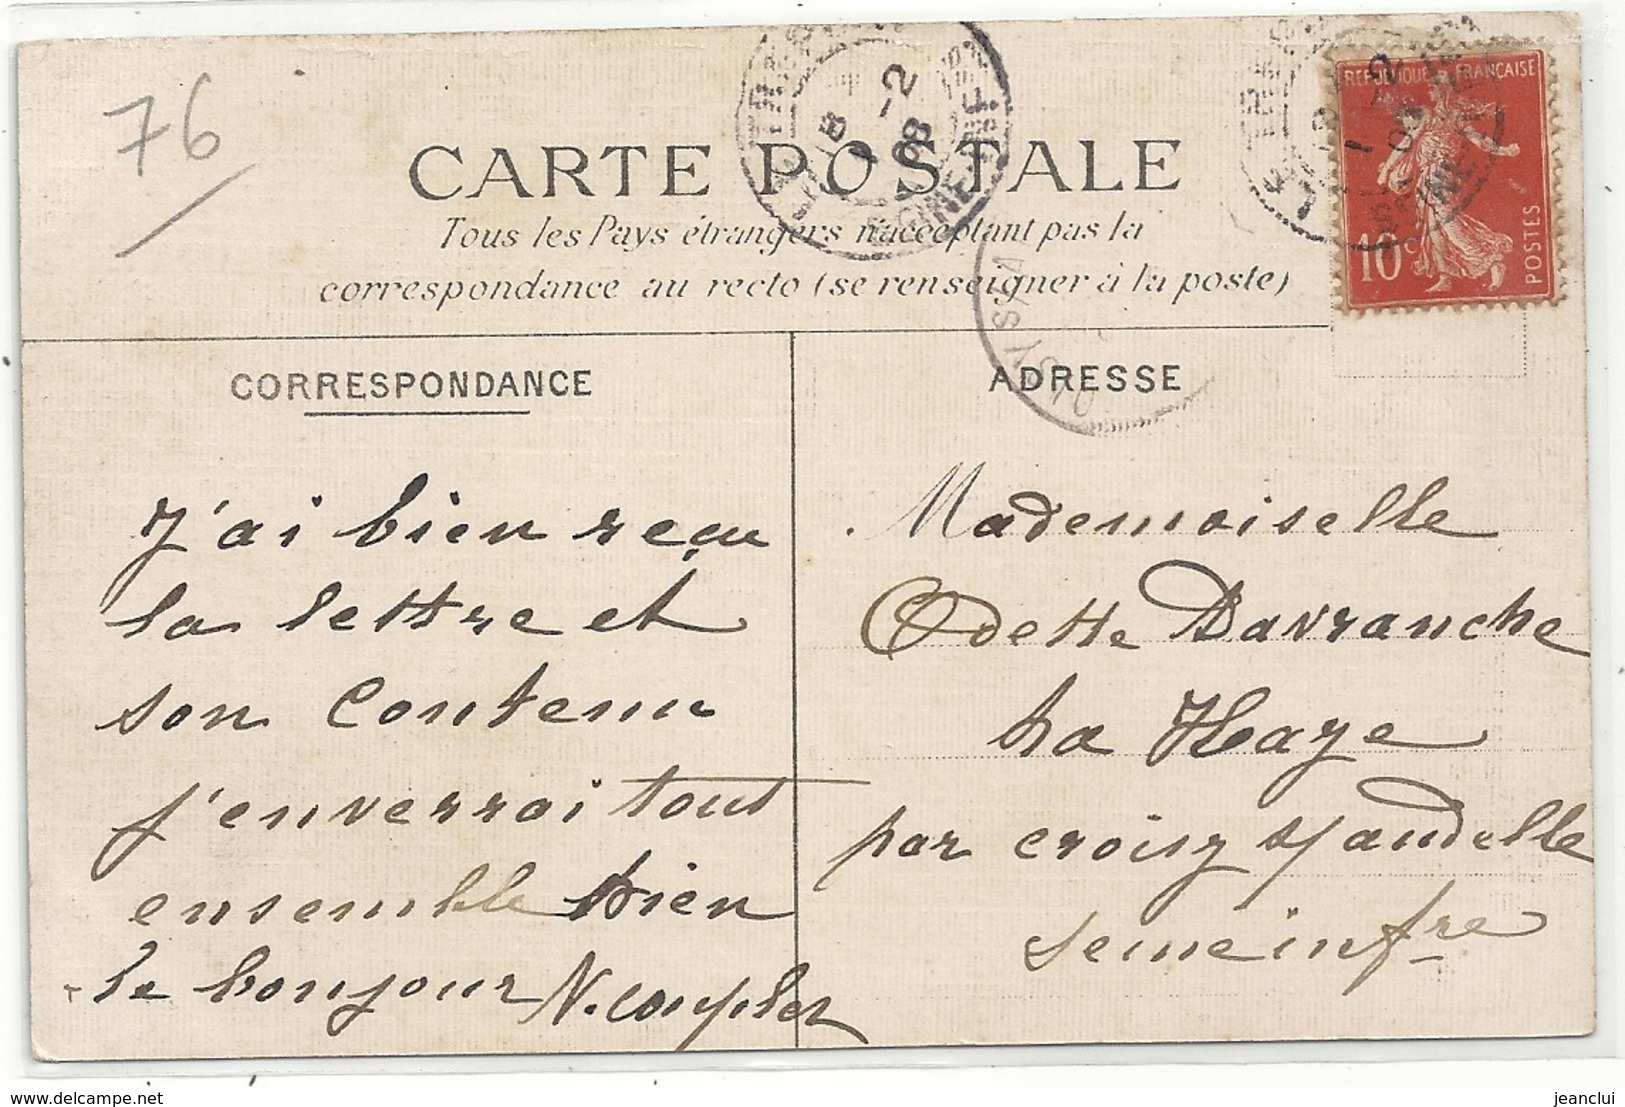 76
CARTE POSTALE
Tous les Pays étrangers n'acceptant pas la
correspondance au recto (se renseigner à la poste)
REPUBLIQUE FRANÇAISE
10c
POSTES
CORRESPONDANCE
ADRESSE
J'ai bien reçu
la lettre et
son contenu
j'enverrai tout
ensemble bien
le bonjour N. Couplet
Mademoiselle
Odette Davranche
La Haye
par Croisy s/andelle
Seine infre
delcampe.net
jeanclui